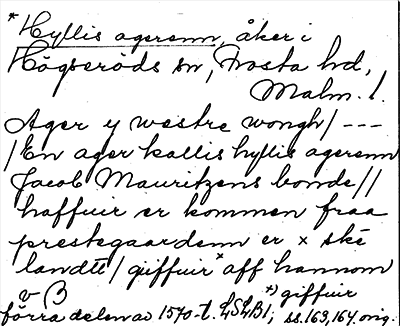 * Hyllis agerenn, åker i
Högseröds sn, Frosta hd,
Malm. l.
Ager y westre wongh / ---
/ En ager kallis hyllis agerenn
Jacob Mauritzens bonde //
haffuir er kommen fraa
prestegaardenn er x ské
landtt / giffuir * aff hannom
v β
*) giffuir
förra delen av 1570-t. LSLB1, ss. 163, 164. orig.